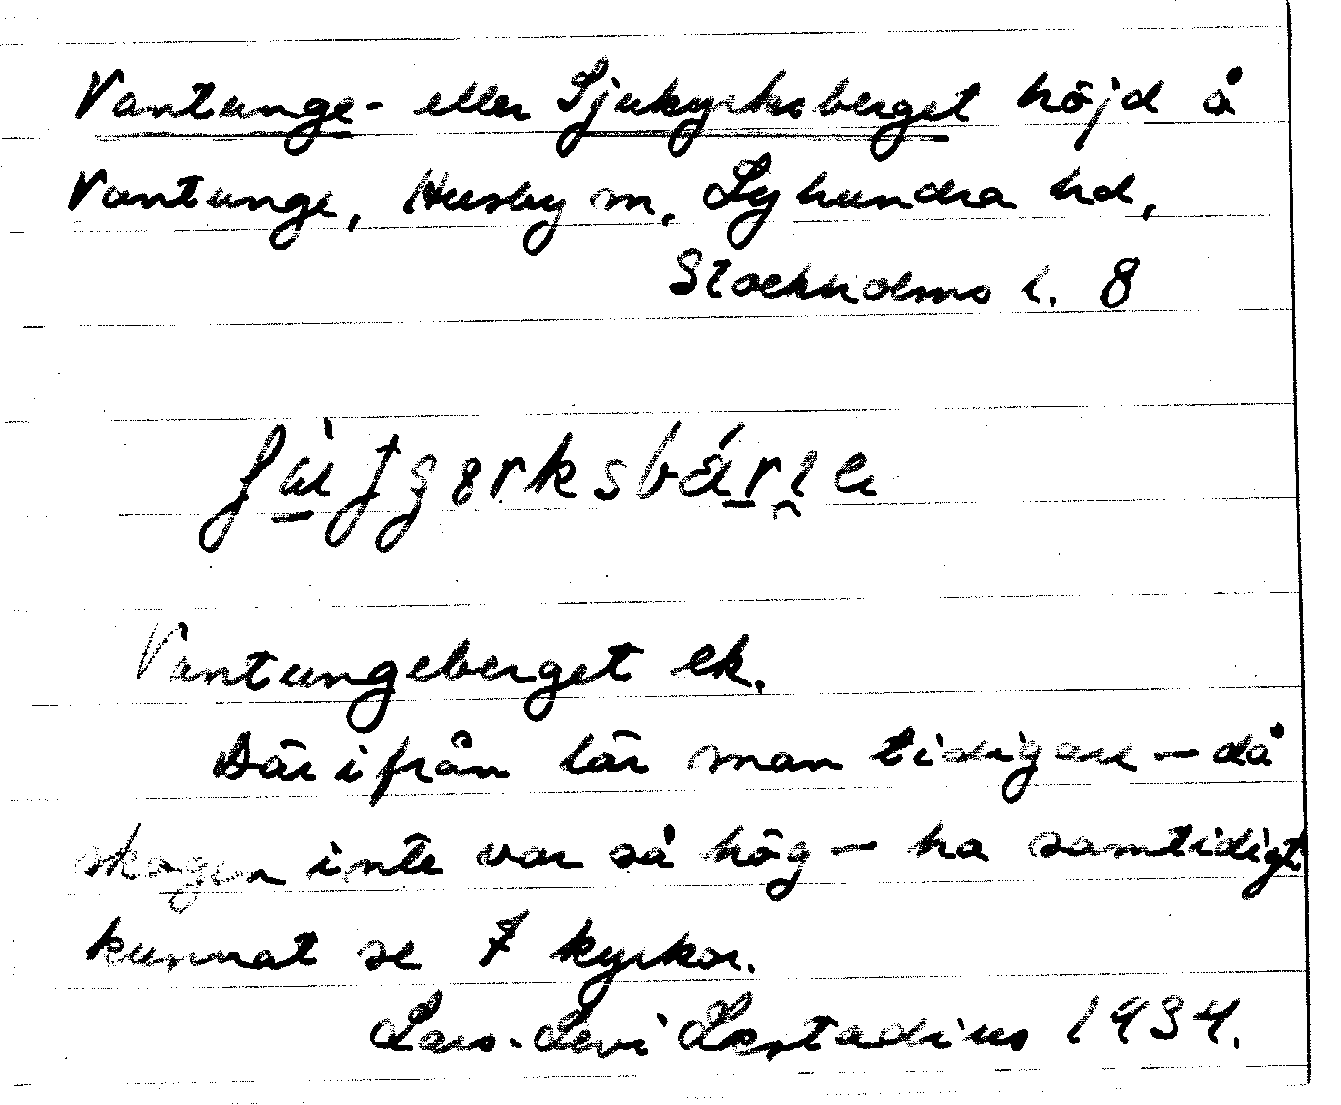 Vantunge- eller Sjukyrksberget höjd å
Vantunge, Husby m. Lyhundra hd,
Stockholms l. 8
Vantungeberget ek.
Därifrån lär man tidigare – då
skogen inte var så hög – ha samtidigt
kunnat se 7 kyrkor.
Lars-Levi Læstadius 1934.